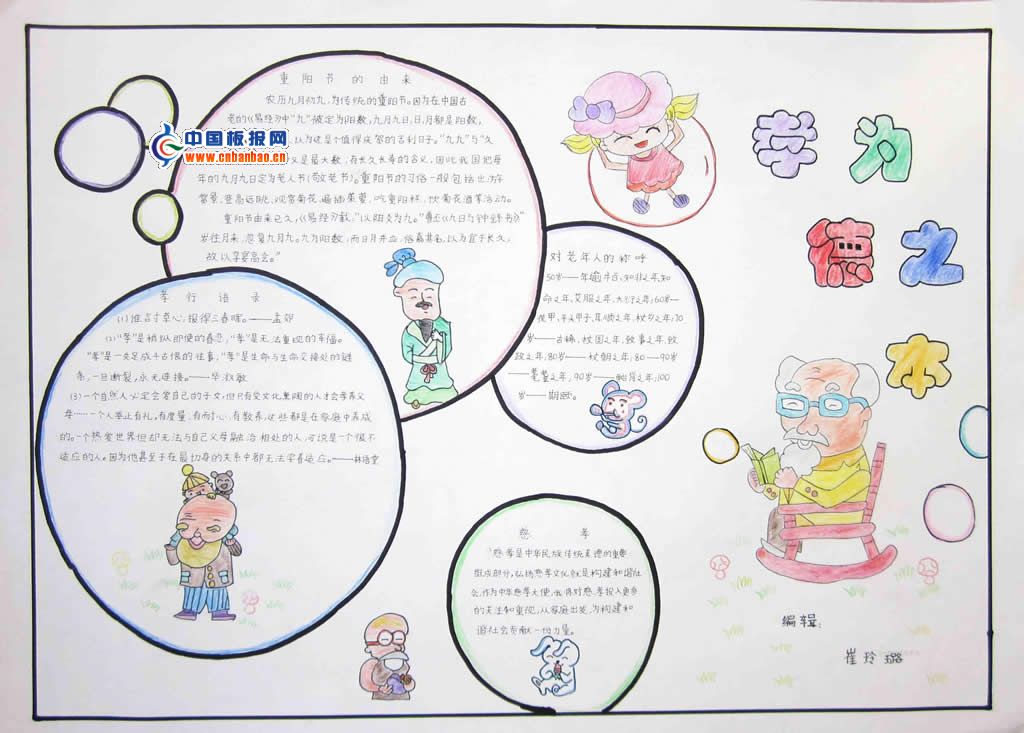 重阳节的由来
农历九月初九,为传统的重阳节。因为在中国古
老的《易经》中"九"被定为阳数,九月九日,日月都是阳数,
以为这是个值得庆贺的吉利日子。"九九"与"久
是最大数,有长久长寿的含义,因此我国把每
年的九月九日定为老人节(敬老节)。重阳节的习俗一般包括出游
赏景、登高远眺、观赏菊花、遍插茱萸、吃重阳糕、饮菊花酒等活动。
重阳节由来已久,《易经》载,"以阳爻为九。"
岁往月来,忽复九月九。九为阳数,而日月并应,俗嘉其名,以为宜于长久,
故以享宴高会。"
中国板报网
www.cnbanbao.cn
学为
儒之
本
对老年人的称呼
50岁——年逾半百、知非之年、知
命之年、艾服之年、大衍之年;60岁—
花甲、平头甲子、耳顺之年、杖乡之年;70
岁——古稀、杖国之年、致事之年、致
政之年;80岁——杖朝之年;80—90岁
——耄耋之年;90岁——鲐背之年;100
岁——期颐。
孝行语录
(1)谁言寸草心,报得三春晖。——孟郊
(2)"孝"是稍纵即使的眷恋,"孝"是无法重现的幸福。
"孝"是一失足成千古恨的往事,"孝"是生命与生命交接处的链
条,一旦断裂,永无连接。——毕淑敏
(3)一个自然人必定会爱自己的子女,但只有受文化熏陶的人才会孝养父
母……一个人举止有礼,有度量,有耐心,有教养,这些都是在家庭中养成
的。一个热爱世界但却无法与自己父母融洽相处的人,可说是一个很不
适应的人。因为他甚至于在最切身的关系中都无法学着适应。——林语堂
慈孝
"慈孝是中华民族传统美德的重要
组成部分,弘扬慈孝文化就是构建和谐社
会,作为中华慈孝大使,我将对慈、孝投入更多
的关注和重视,从家庭出发,为构建和
谐社会贡献一份力量。
编辑:
崔玲璐